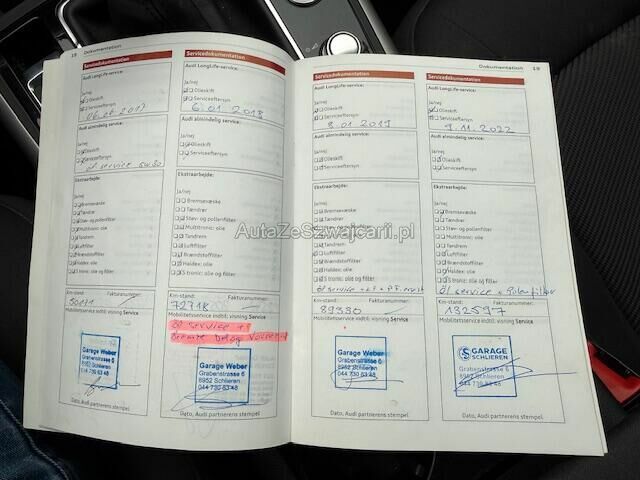 18 Dokumentation
Servicedokumentation
Audi LongLife-service:
Ja/nej
Olieskift
Serviceeftersyn
06.06.2017
Audi almindelig service:
Ja/nej
Olieskift
Serviceeftersyn
öl service 5w30
Ekstraarbejde:
Ja/nej
Bremsevæske
Tændrør
Støv- og pollenfilter
Multitronic: olie
Tandrem
Luftfilter
Brændstoffilter
Haldex: olie
S tronic: olie og filter
Km-stand: Fakturanummer:
Mobilitetsservice indtil: visning Service
Garage Weber
Grabenstrasse 6
8952 Schlieren
044 730 63 48
Dato, Audi partnerens stempel
Servicedokumentation
Audi LongLife-service:
Ja/nej
Olieskift
Serviceeftersyn
6.01.2018
Audi almindelig service:
Ja/nej
Olieskift
Serviceeftersyn
Ekstraarbejde:
Ja/nej
Bremsevæske
Tændrør
Støv- og pollenfilter
Multitronic: olie
Tandrem
Luftfilter
Brændstoffilter
Haldex: olie
S tronic: olie og filter
Km-stand: Fakturanummer:
72718
Mobilitetsservice indtil: visning Service
öl service +
Bremse Belag
Garage Weber
Grabenstrasse 6
8952 Schlieren
044 730 63 48
Dato, Audi partnerens stempel
Dokumentation 19
Servicedokumentation
Audi LongLife-service:
Ja/nej
Olieskift
Serviceeftersyn
8.01.2019
Audi almindelig service:
Ja/nej
Olieskift
Serviceeftersyn
Ekstraarbejde:
Ja/nej
Bremsevæske
Tændrør
Støv- og pollenfilter
Multitronic: olie
Tandrem
Luftfilter
Brændstoffilter
Haldex: olie
S tronic: olie og filter
öl service +
Km-stand: Fakturanummer:
89330
Mobilitetsservice indtil: visning Service
Garage Weber
Grabenstrasse 6
8952 Schlieren
044 730 63 48
Dato, Audi partnerens stempel
Servicedokumentation
Audi LongLife-service:
Ja/nej
Olieskift
Serviceeftersyn
9.11.2022
Audi almindelig service:
Ja/nej
Olieskift
Serviceeftersyn
Ekstraarbejde:
Ja/nej
Bremsevæske
Tændrør
Støv- og pollenfilter
Multitronic: olie
Tandrem
Luftfilter
Brændstoffilter
Haldex: olie
S tronic: olie og filter
öl service + Polenfilter
Km-stand: Fakturanummer:
132597
Mobilitetsservice indtil: visning Service
GARAGE
SCHLIEREN
Grabenstrasse 6
8952 Schlieren
044 730 63 48
Dato, Audi partnerens stempel
AutaZeSzwajcarii.pl